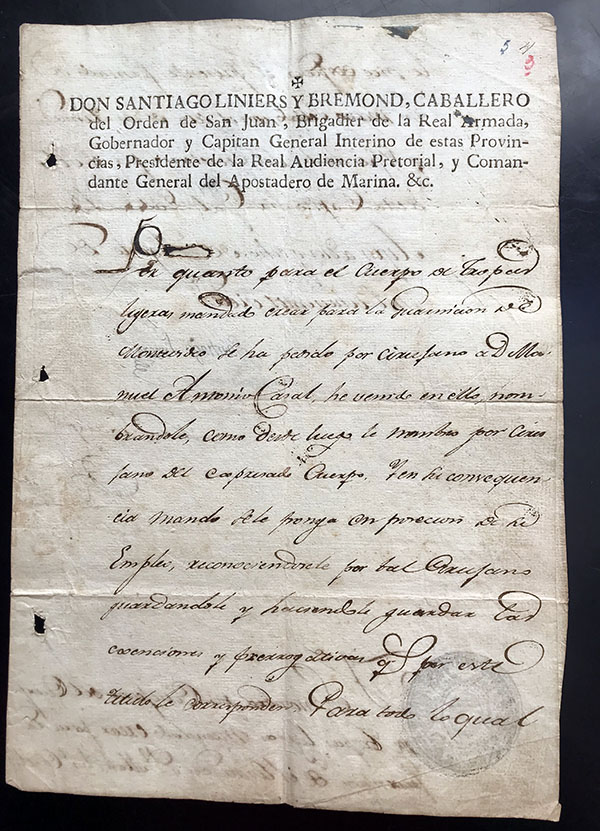 5 4
3
✠
DON SANTIAGO LINIERS Y BREMOND, CABALLERO
del Orden de San Juan, Brigadier de la Real Armada,
Gobernador y Capitan General Interino de estas Provin-
cias, Presidente de la Real Audiencia Pretorial, y Coman-
dante General del Apostadero de Marina. &c.
Por quanto para el Cuerpo de Tropas
ligeras mandado crear para la Guarnicion de
Montevideo se ha pedido por Cirujano a D. Ma-
nuel Antonio Casal, he venido en ello, nom-
brandole, como desde luego le nombro por Ciru-
jano del expresado Cuerpo. Y en su consequen-
cia mando se le ponga en posecion de su
Empleo, reconociendole por tal Cirujano
guardandole y haciendole guardar las
exenciones y prerrogativas q.e por este
titulo le corresponden Para todo lo qual